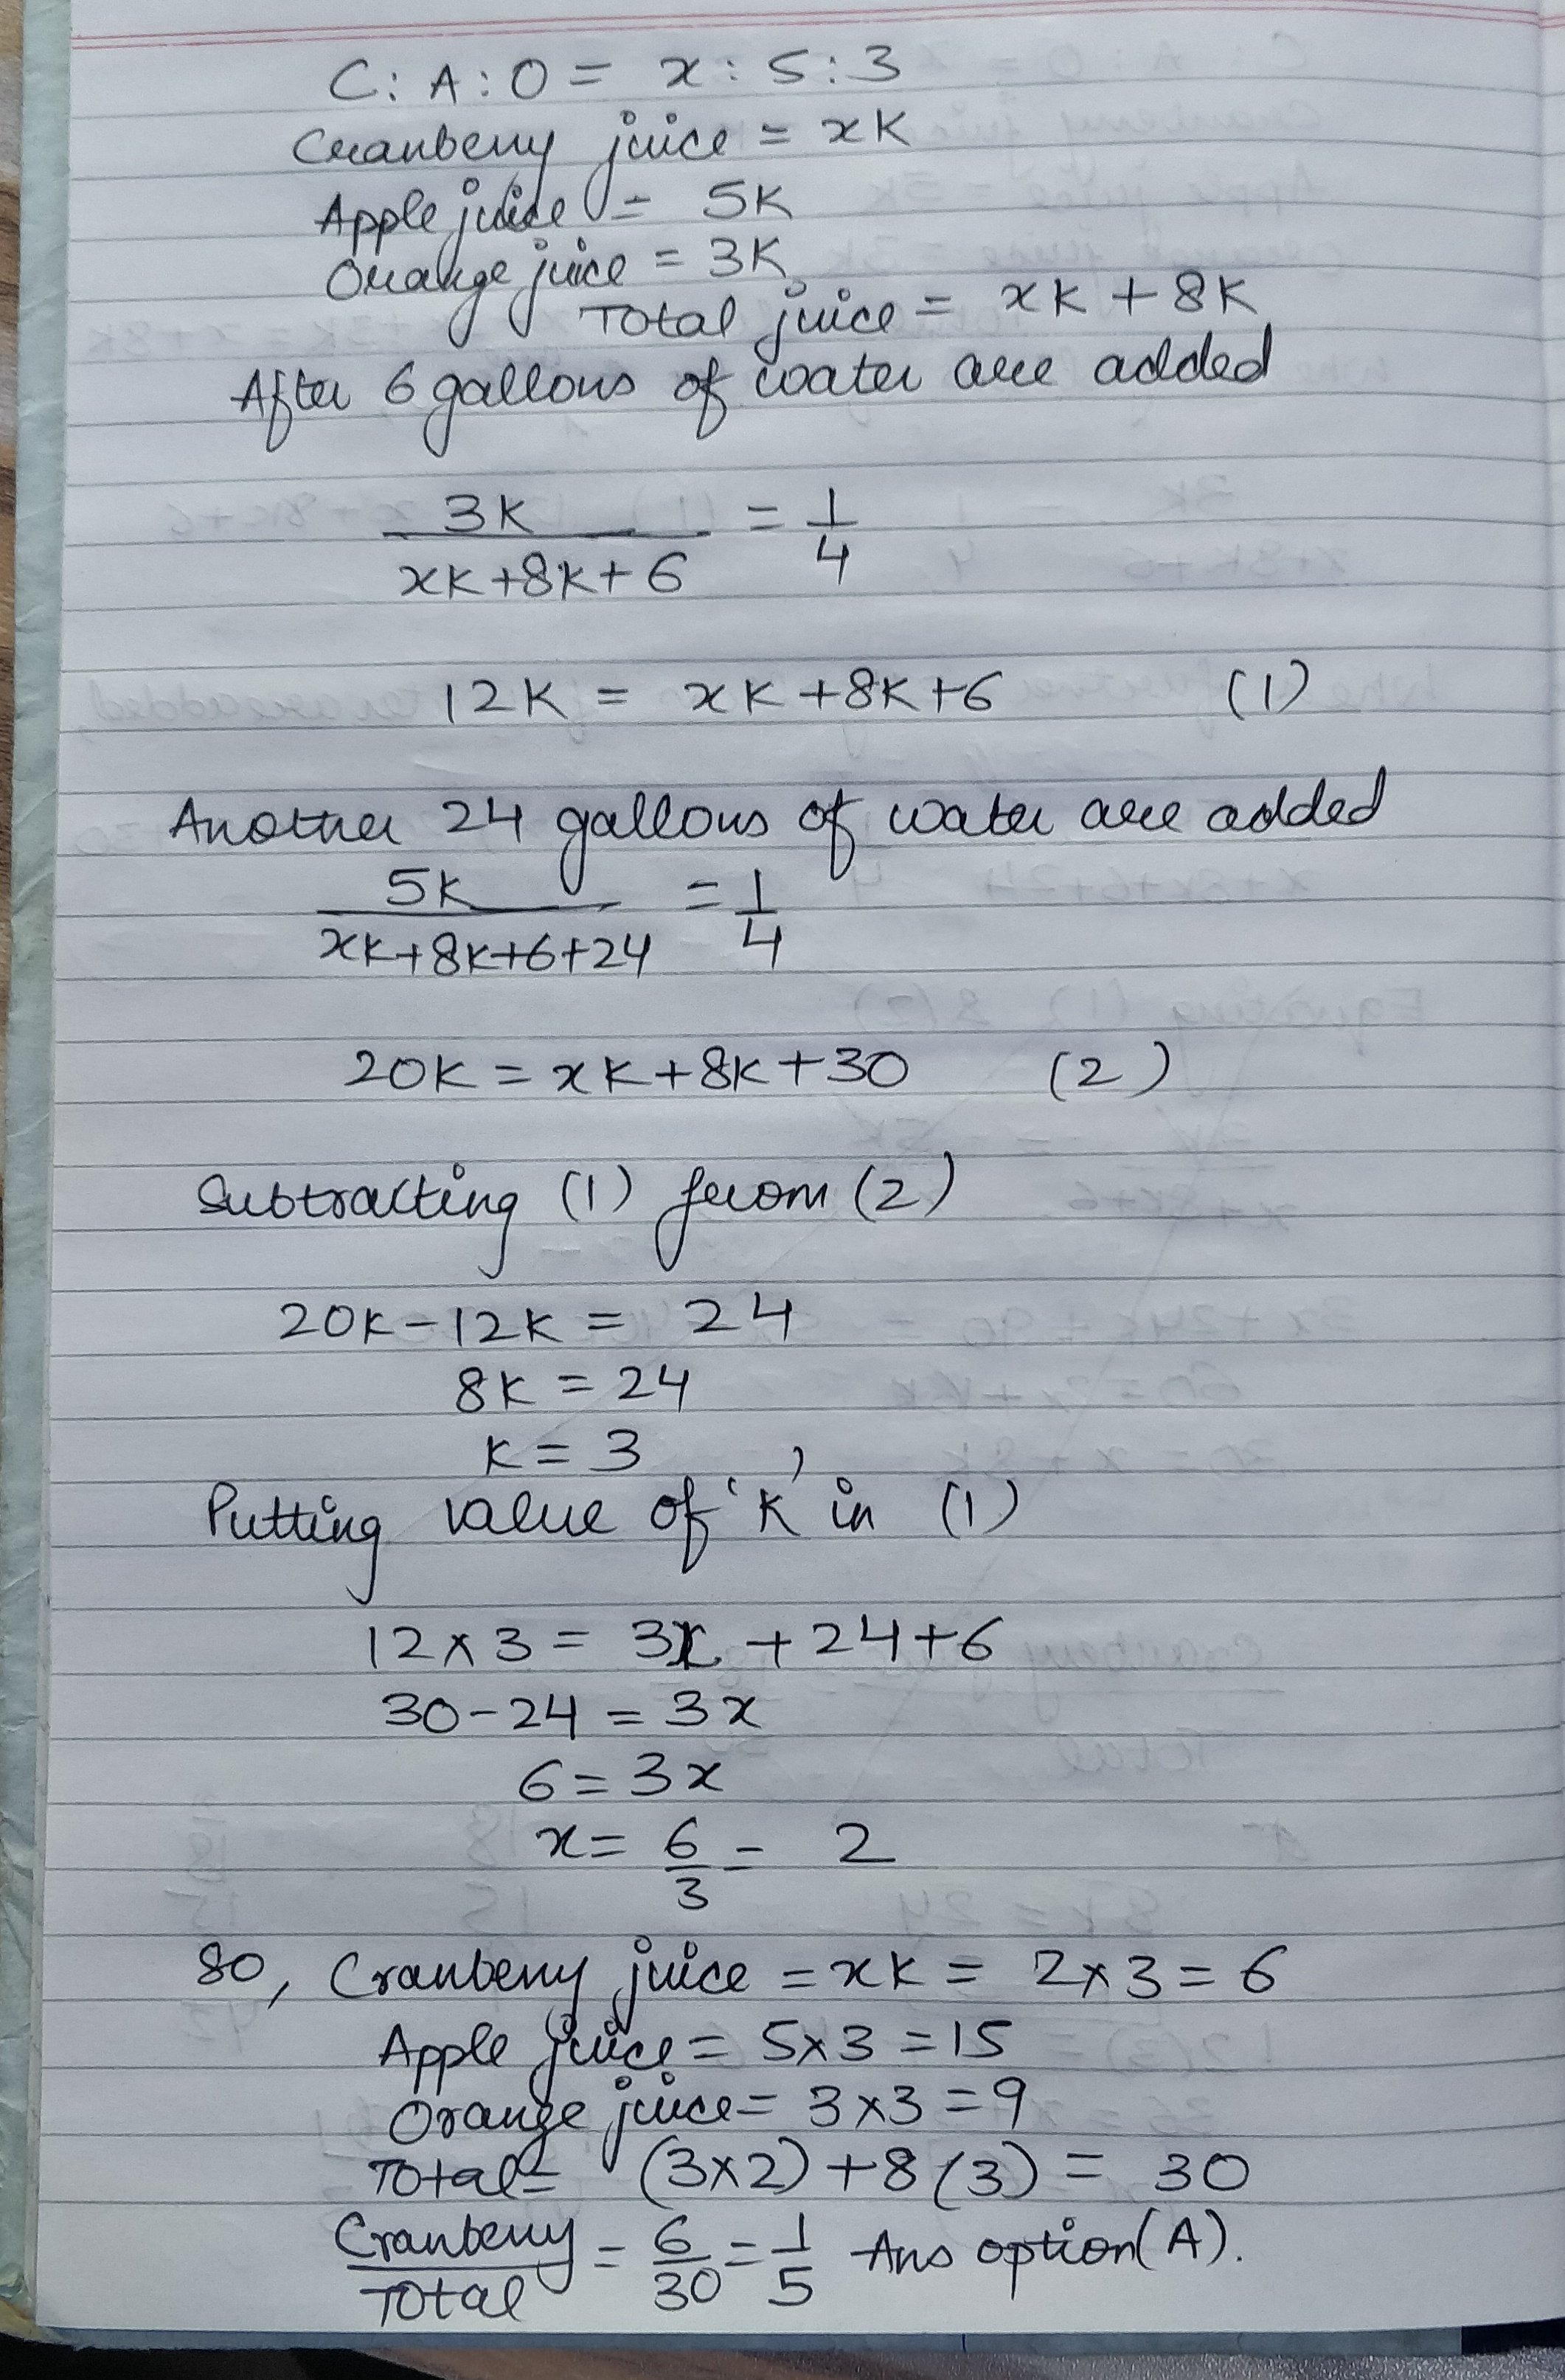 C : A : O = x : 5 : 3
Cranberry juice = xK
Apple juice = 5K
Orange juice = 3K
Total juice = xK + 8K
After 6 gallons of water are added
3K / (xK + 8K + 6) = 1/4
12K = xK + 8K + 6 (1)
Another 24 gallons of water are added
5K / (xK + 8K + 6 + 24) = 1/4
20K = xK + 8K + 30 (2)
Subtracting (1) from (2)
20K - 12K = 24
8K = 24
K = 3
Putting value of 'K' in (1)
12 × 3 = 3x + 24 + 6
30 - 24 = 3x
6 = 3x
x = 6/3 = 2
So, Cranberry juice = xK = 2 × 3 = 6
Apple juice = 5 × 3 = 15
Orange juice = 3 × 3 = 9
Total = (3×2) + 8(3) = 30
Cranberry / Total = 6/30 = 1/5 Ans option (A).